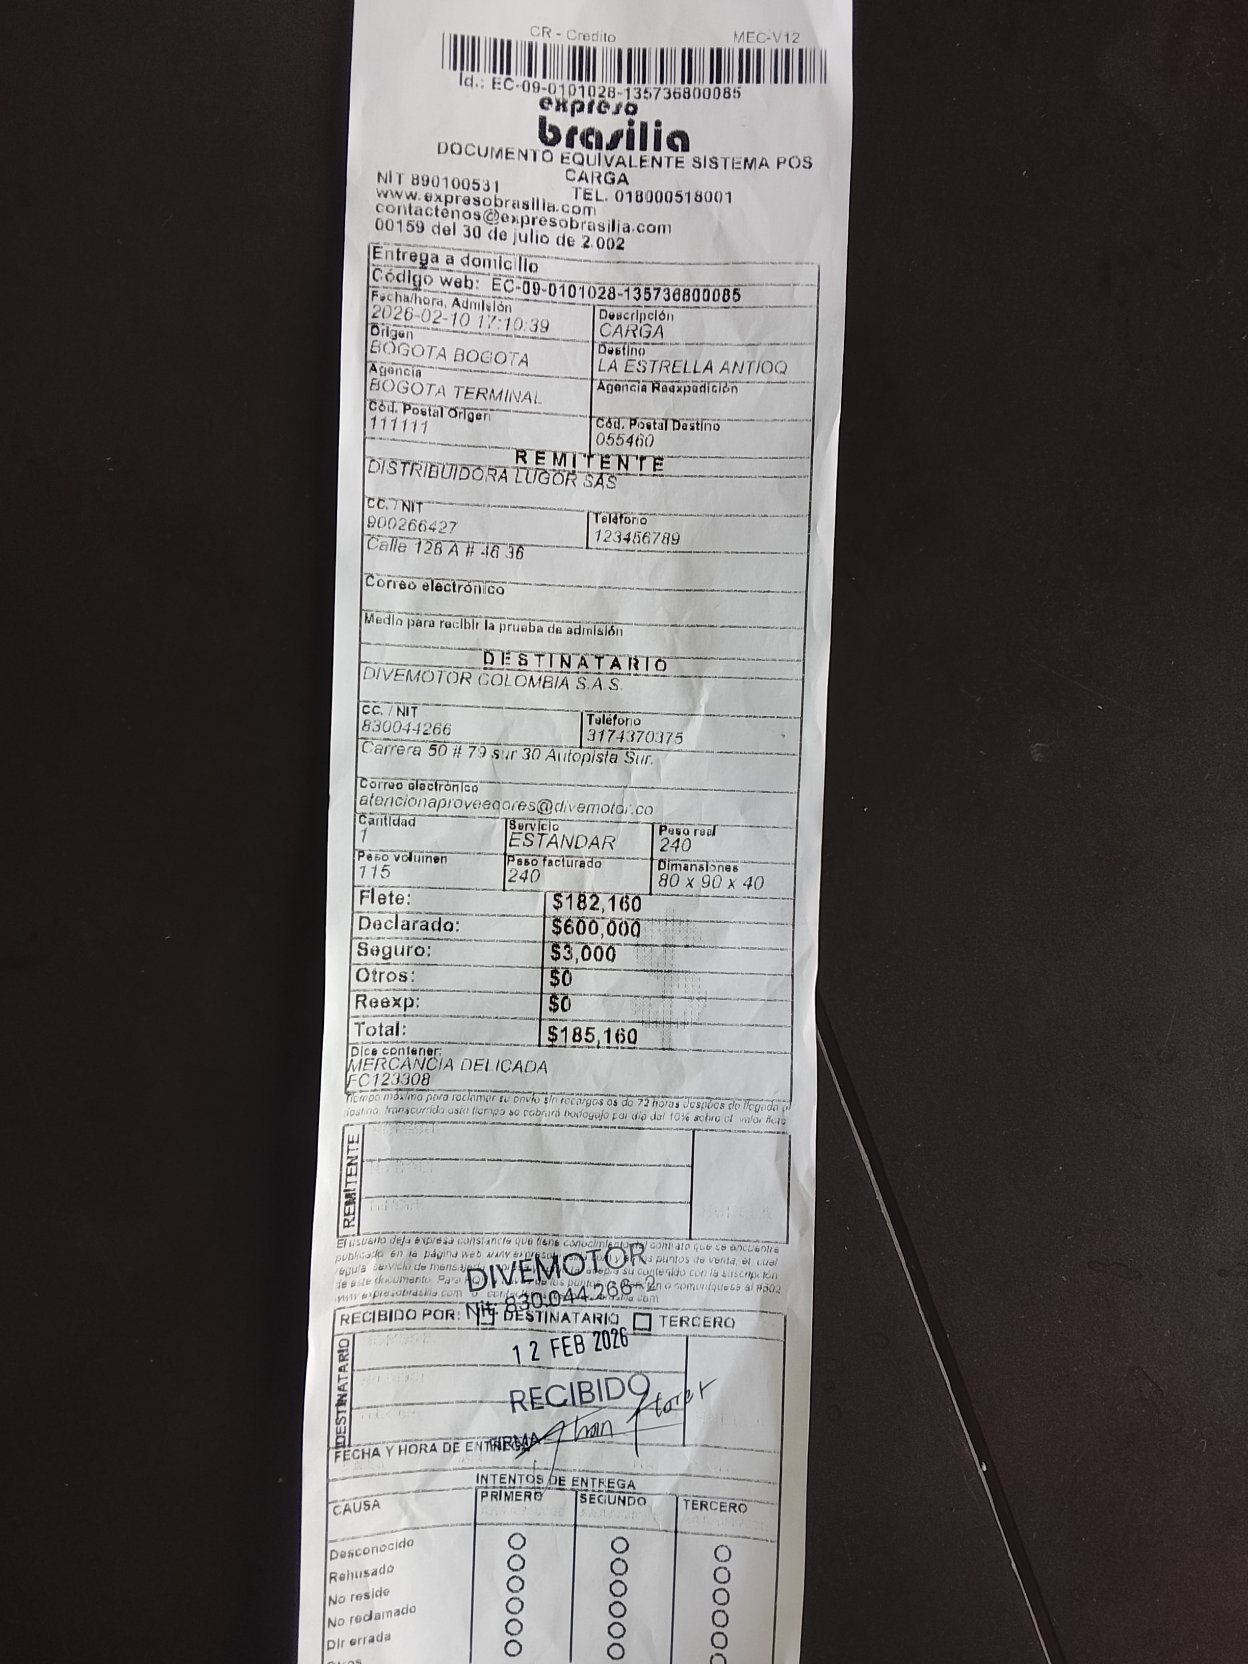 CR - Credito MEC-V12
Id.: EC-09-0101028-135736800085
expreso
brasilia
DOCUMENTO EQUIVALENTE SISTEMA POS
CARGA
NIT 890100531 TEL. 018000518001
www.expresobrasilia.com
contactenos@expresobrasilia.com
00159 del 30 de julio de 2.002
Entrega a domicilio
Código web: EC-09-0101028-135736800085
Fecha/hora, Admisión Descripción
2026-02-10 17:10:39 CARGA
Origen Destino
BOGOTA BOGOTA LA ESTRELLA ANTIOQ
Agencia Agencia Reexpedición
BOGOTA TERMINAL
Cód. Postal Origen Cód. Postal Destino
111111 055460
REMITENTE
DISTRIBUIDORA LUGOR SAS
CC. / NIT Teléfono
900266427 123456789
Calle 128 A # 46 36
Correo electrónico
Medio para recibir la prueba de admisión
DESTINATARIO
DIVEMOTOR COLOMBIA S.A.S.
CC. / NIT Teléfono
830044266 3174370375
Carrera 50 # 79 sur 30 Autopista Sur.
Correo electrónico
atencionaproveedores@divemotor.co
Cantidad Servicio Peso real
1 ESTANDAR 240
Peso volumen Peso facturado Dimensiones
115 240 80 x 90 x 40
Flete: $182,160
Declarado: $600,000
Seguro: $3,000
Otros: $0
Reexp: $0
Total: $185,160
Dice contener:
MERCANCIA DELICADA
FC123308
Tiempo máximo para reclamar su envío sin recargos es de 72 horas después de llegada a
destino, transcurrido este tiempo se cobrará bodegaje por día del 10% sobre el valor flete
REMITENTE
El usuario deja expresa constancia que tiene conocimiento contrato que se encuentra
publicado en la página web puntos de venta, el cual
regula servicio de su contenido con la suscripción
de este documento. Para o comuníquese al #502
www.expresobrasilia.com
DIVEMOTOR
Nit. 830.044.266-2
RECIBIDO POR: DESTINATARIO TERCERO
12 FEB 2026
RECIBIDO
DESTINATARIO
FIRMA
FECHA Y HORA DE ENTREGA
INTENTOS DE ENTREGA
CAUSA PRIMERO SEGUNDO TERCERO
Desconocido
Rehusado
No reside
No reclamado
Dir errada